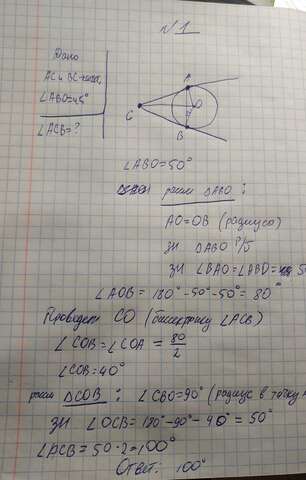 N 1
Дано
AC и BC - касат.
∠ABO=45°
∠ACB=?
A
O
C
B
∠ABO=50°
расм △ABO:
AO=OB (радиусы)
зн △ABO р/б
зн ∠BAO=∠ABO= 50
∠AOB= 180°-50°-50°= 80°
Проведём CO (биссектрису ∠ACB)
∠COB=∠COA= 80/2
∠COB=40°
расм △COB: ∠CBO=90° (радиус в точку
зн ∠OCB=180°-90°-40°=50°
∠ACB=50·2=100°
Ответ: 100°